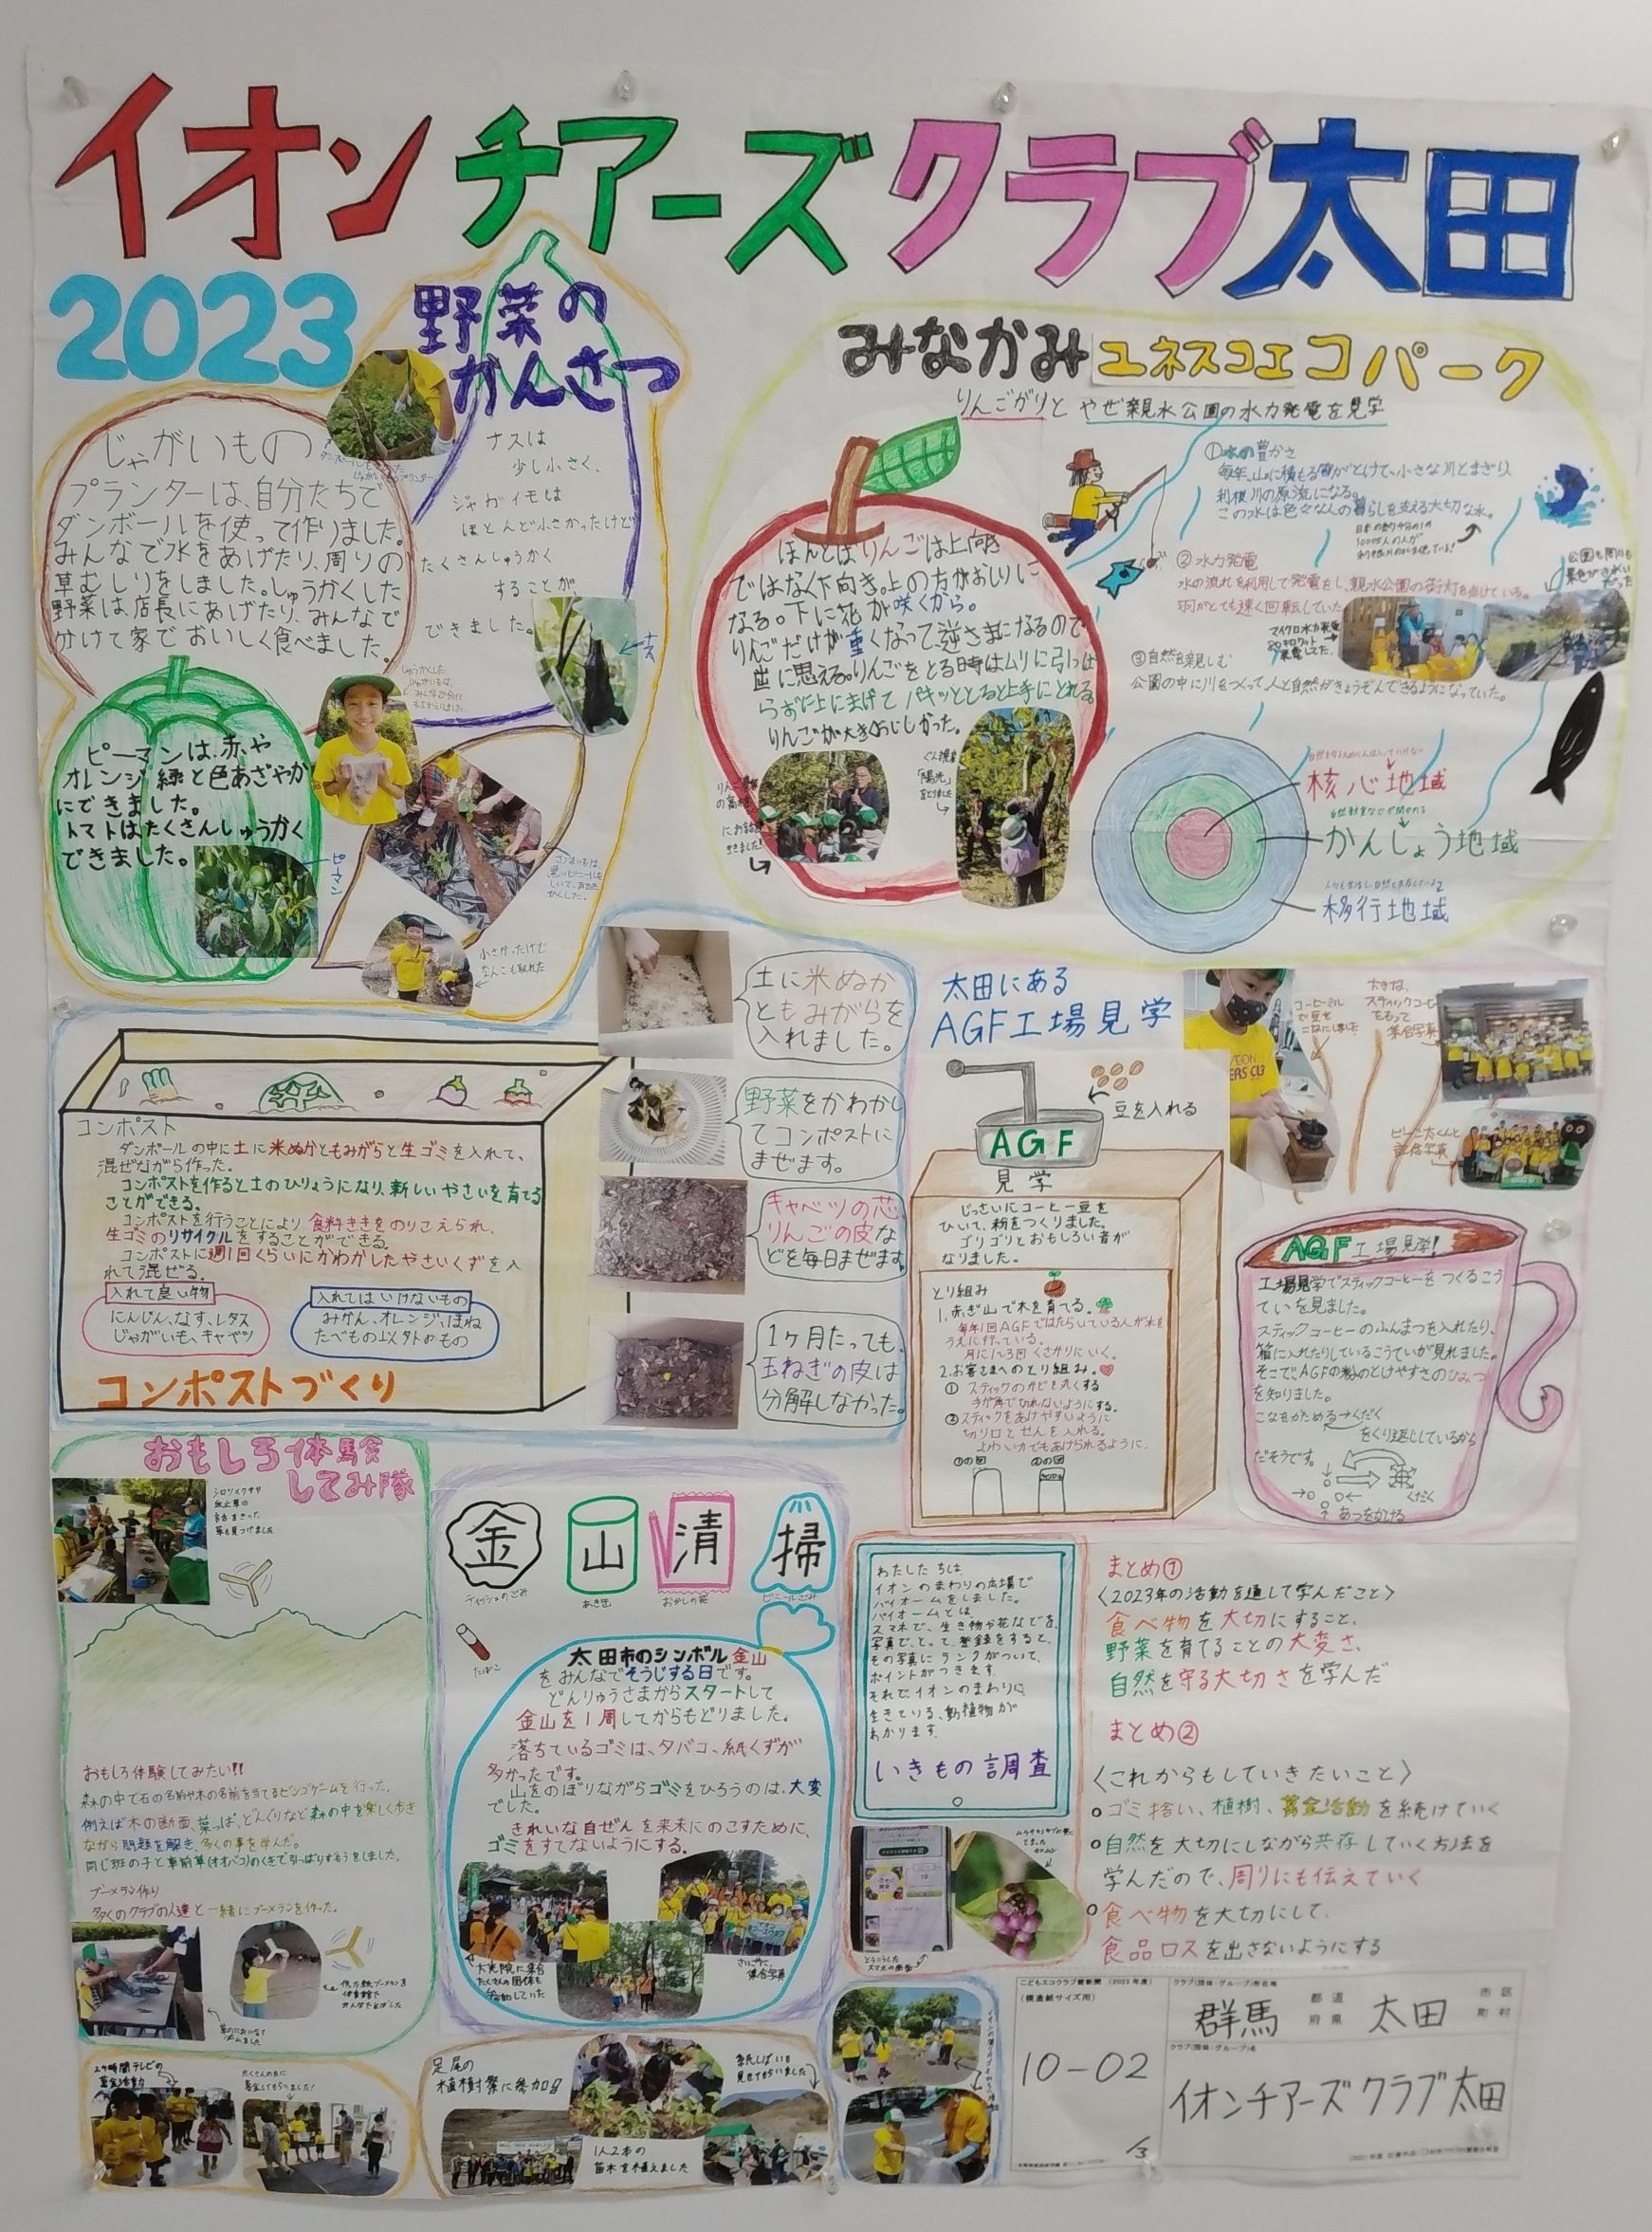 イオンチアーズクラブ太田
2023
野菜の
かんさつ
じゃがいもの
プランターは、自分たちで
ダンボールを使って作りました。
みんなで水をあげたり、周りの
草むしりをしました。しゅうかくした
野菜は、店長にあげたり、みんなで
分けて家でおいしく食べました。
ナスは
少し小さく、
ジャガイモは
ほとんど小さかったけど
たくさんしゅうかく
することが
できました。
ピーマンは、赤や
オレンジ、緑と色あざやか
にできました。
トマトはたくさんしゅうかく
できました。
ピーマン
小さかったけど
なんこも取れた
みなかみユネスコエコパーク
りんごがりと やぜ親水公園の水力発電を見学
ほんとはりんごは上向き
ではなく下向き。上の方がおしりに
なる。下に花が咲くから。
りんごだけが重くなって、逆さまになるので
逆に思える。りんごをとる時はムリに引っぱ
らずに上にまげて パキッととると上手にとれる。
りんごが大きくおいしかった。
ぐんま県産
「陽光」
をとりました
①水の豊かさ
毎年、山に積もる雪がとけて、小さな川とまざり、
利根川の原流になる。
この水は色々な人の暮らしを支える大切な水。
②水力発電
水の流れを利用して発電をし、親水公園の街灯を点けている。
羽がとても速く回転していた
③自然を親しむ
公園の中に川をつくって人と自然がきょうぞんできるようになっていた。
核心地域
かんしょう地域
移行地域
コンポスト
ダンボールの中に土に米ぬかともみがらと生ゴミを入れて、
混ぜながら作った。
コンポストを作ると土のひりょうになり、新しいやさいを育てる
ことができる。
コンポストを行うことにより食料ききをのりこえられ、
生ゴミのリサイクルをすることができる。
コンポストに週1回くらいにかわかしたやさいくずを入
れて混ぜる。
入れて良い物
にんじん、なす、レタス
じゃがいも、キャベツ
入れてはいけないもの
みかん、オレンジ、ほね
たべもの以外のもの
コンポストづくり
土に米ぬか
ともみがらを
入れました。
野菜をかわかし
てコンポストに
まぜます。
キャベツの芯
りんごの皮な
どを毎日まぜます。
1ヶ月たっても、
玉ねぎの皮は
分解しなかった。
太田にある
AGF工場見学
豆を入れる
コーヒーミル
で豆を
こなにしました
大きな、
スティックコーヒー
をもって
集合写真
AGF
見学
じっさいにコーヒー豆を
ひいて、粉をつくりました。
ゴリゴリとおもしろい音が
なりました。
とり組み
1. 赤ぎ山で木を育てる。
毎年1回AGFではたらいている人が木を
うえに行っている。
月に1〜3回くさかりにいく。
2.お客さまへのとり組み。
① スティックのかどを丸くする
手が角で切れないようにする。
②スティックをあけやすいように
切り口とせんを入れる。
よわい力でもあけられるように。
①の図
②の図
AGF工場見学!
工場見学でスティックコーヒーをつくるこう
ていを見ました。
スティックコーヒーのふんまつを入れたり、
箱に入れたりしているこうていが見れました。
そこで、AGFの粉のとけやすさのひみつ
を知りました。
こなをかためる→くだく
をくり返しているから
だそうです。
くだく
あつをかける
おもしろ体験
してみ隊
おもしろ体験してみたい!!
森の中で石の名前や木の名前を当てるビンゴゲームを行った。
例えば木の断面、葉っぱ、どんぐりなど森の中を楽しく歩き
ながら問題を解き、多くの事を学んだ。
同じ班の子と車前草(オオバコ)のくきで引っぱりずもうをしました。
ブーメラン作り
多くのクラブの人達と一緒にブーメランを作った。
金山清掃
ティッシュのごみ
あき缶
おかしの袋
ビニールごみ
たばこ
太田市のシンボル金山
をみんなでそうじする日です。
どんりゅうさまからスタートして
金山を1周してからもどりました。
落ちているゴミは、タバコ、紙くずが
多かったです。
山をのぼりながらゴミをひろうのは、大変
でした。
きれいな自ぜんを未来にのこすために、
ゴミをすてないようにする。
大光院に集合
たくさんの団体も
参加していた
さいごに、
集合写真
わたしたちは
イオンのまわりの広場で
バイオームをしました。
バイオームとは、
スマホで、生き物や花などを
写真で、とって、登録をすると、
その写真にランクがついて、
ポイントがつきます。
それで、イオンのまわりに
生きている、動植物が
わかります。
いきもの調査
まとめ①
〈2023年の活動を通して学んだこと〉
食べ物を大切にすること、
野菜を育てることの大変さ、
自然を守る大切さを学んだ
まとめ②
〈これからもしていきたいこと〉
○ゴミ拾い、植樹、募金活動を続けていく
○自然を大切にしながら共存していく方法を
学んだので、周りにも伝えていく
○食べ物を大切にして、
食品ロスを出さないようにする
24時間テレビの
募金活動
たくさんの方に
募金してもらいました!
足尾の
植樹祭に参加!!
1人2本の
苗木を植えました
こどもエコクラブ壁新聞 (2023年度)
(模造紙サイズ用)
10-02
/3
クラブ(団体・グループ)所在地
群馬 都道府県 太田 市区町村
クラブ(団体・グループ)名
イオンチアーズクラブ太田